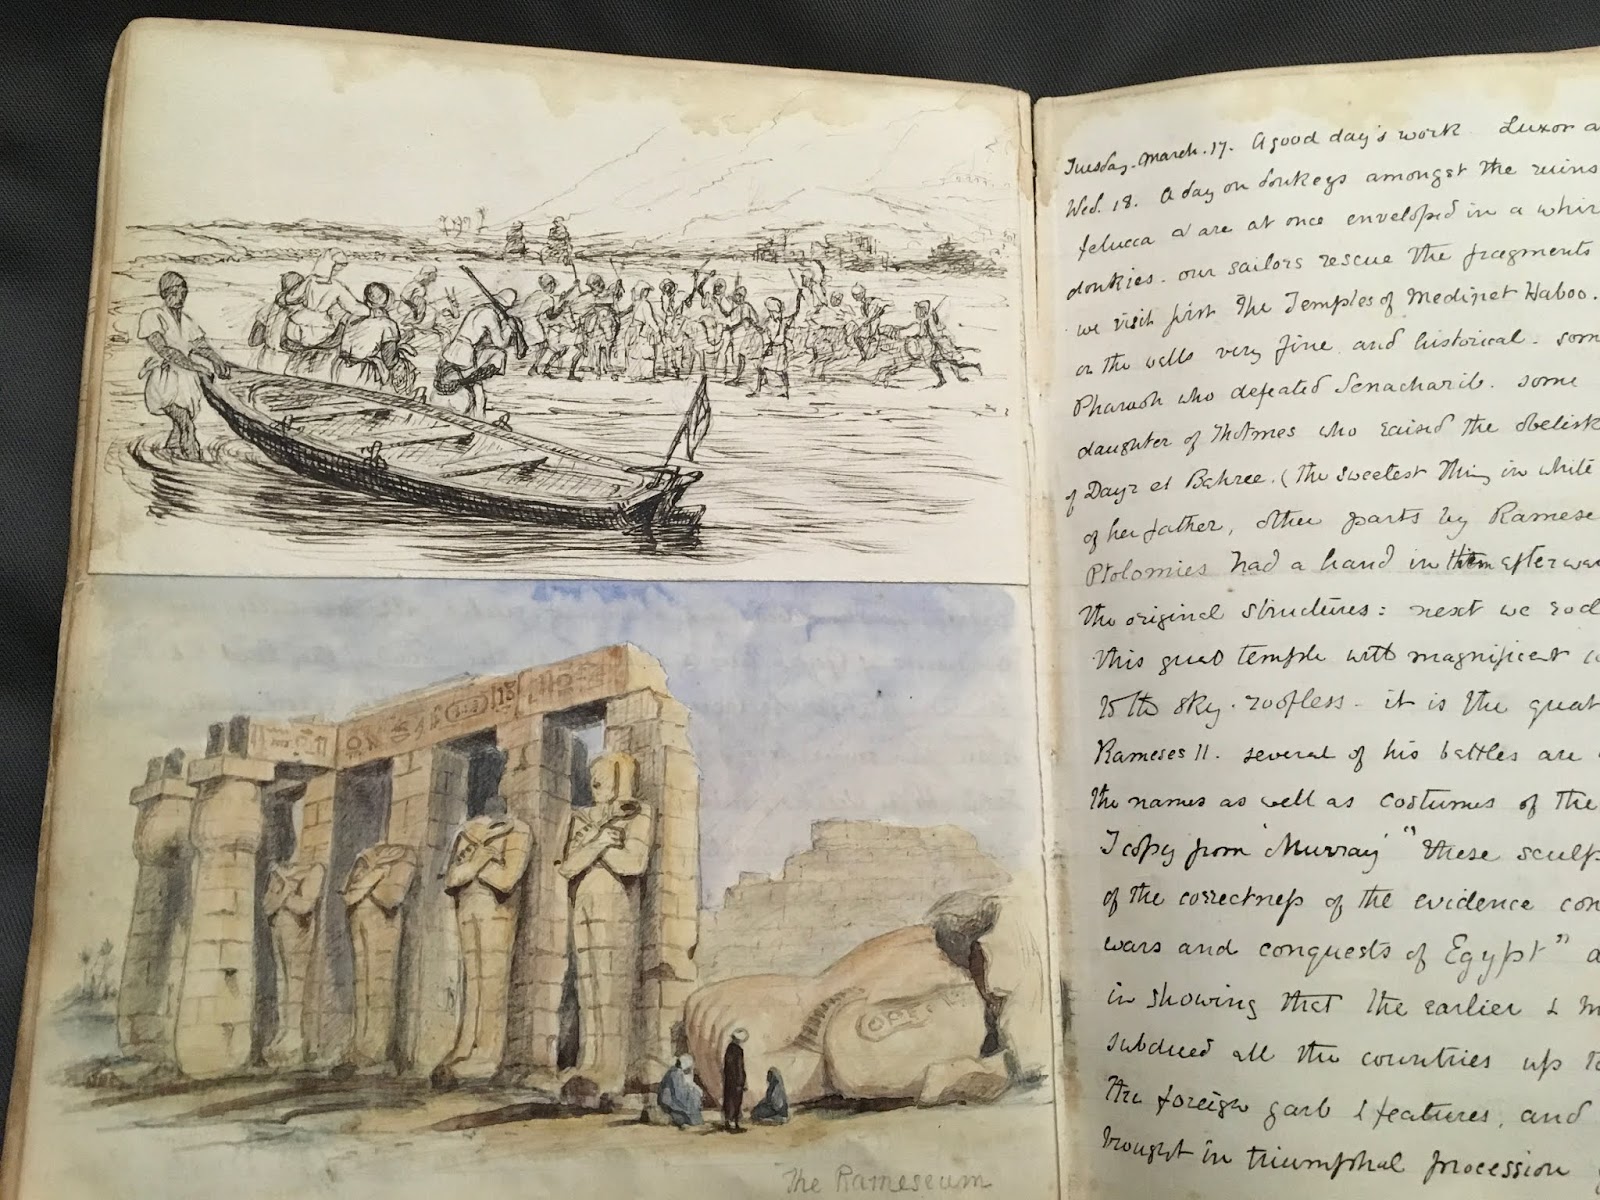 The Rameseum
Tuesday. March. 17. A good day's work. Luxor a
Wed. 18. A day on donkeys amongst the ruins
felucca & are at once enveloped in a whir
donkies. our sailors rescue the fragments
we visit first the Temples of Medinet Haboo.
on the walls very fine and historical. som
Pharaoh who defeated Senacharib. some
daughter of Thotmes who raised the obelisk
of Dayr el Bahree. (the sweetest thing in white
of her father, other parts by Ramese
Ptolomies had a hand in them afterwar
the original structures: next we rod
this great temple with magnificent
to the sky. roofless. it is the great
Rameses II. several of his battles are
the names as well as costumes of the
I copy from 'Murray' "these sculp
of the correctness of the evidence con
wars and conquests of Egypt" a
in showing that the earlier & m
subdued all the countries up to
the foreign garb & features, and
brought in triumphal procession